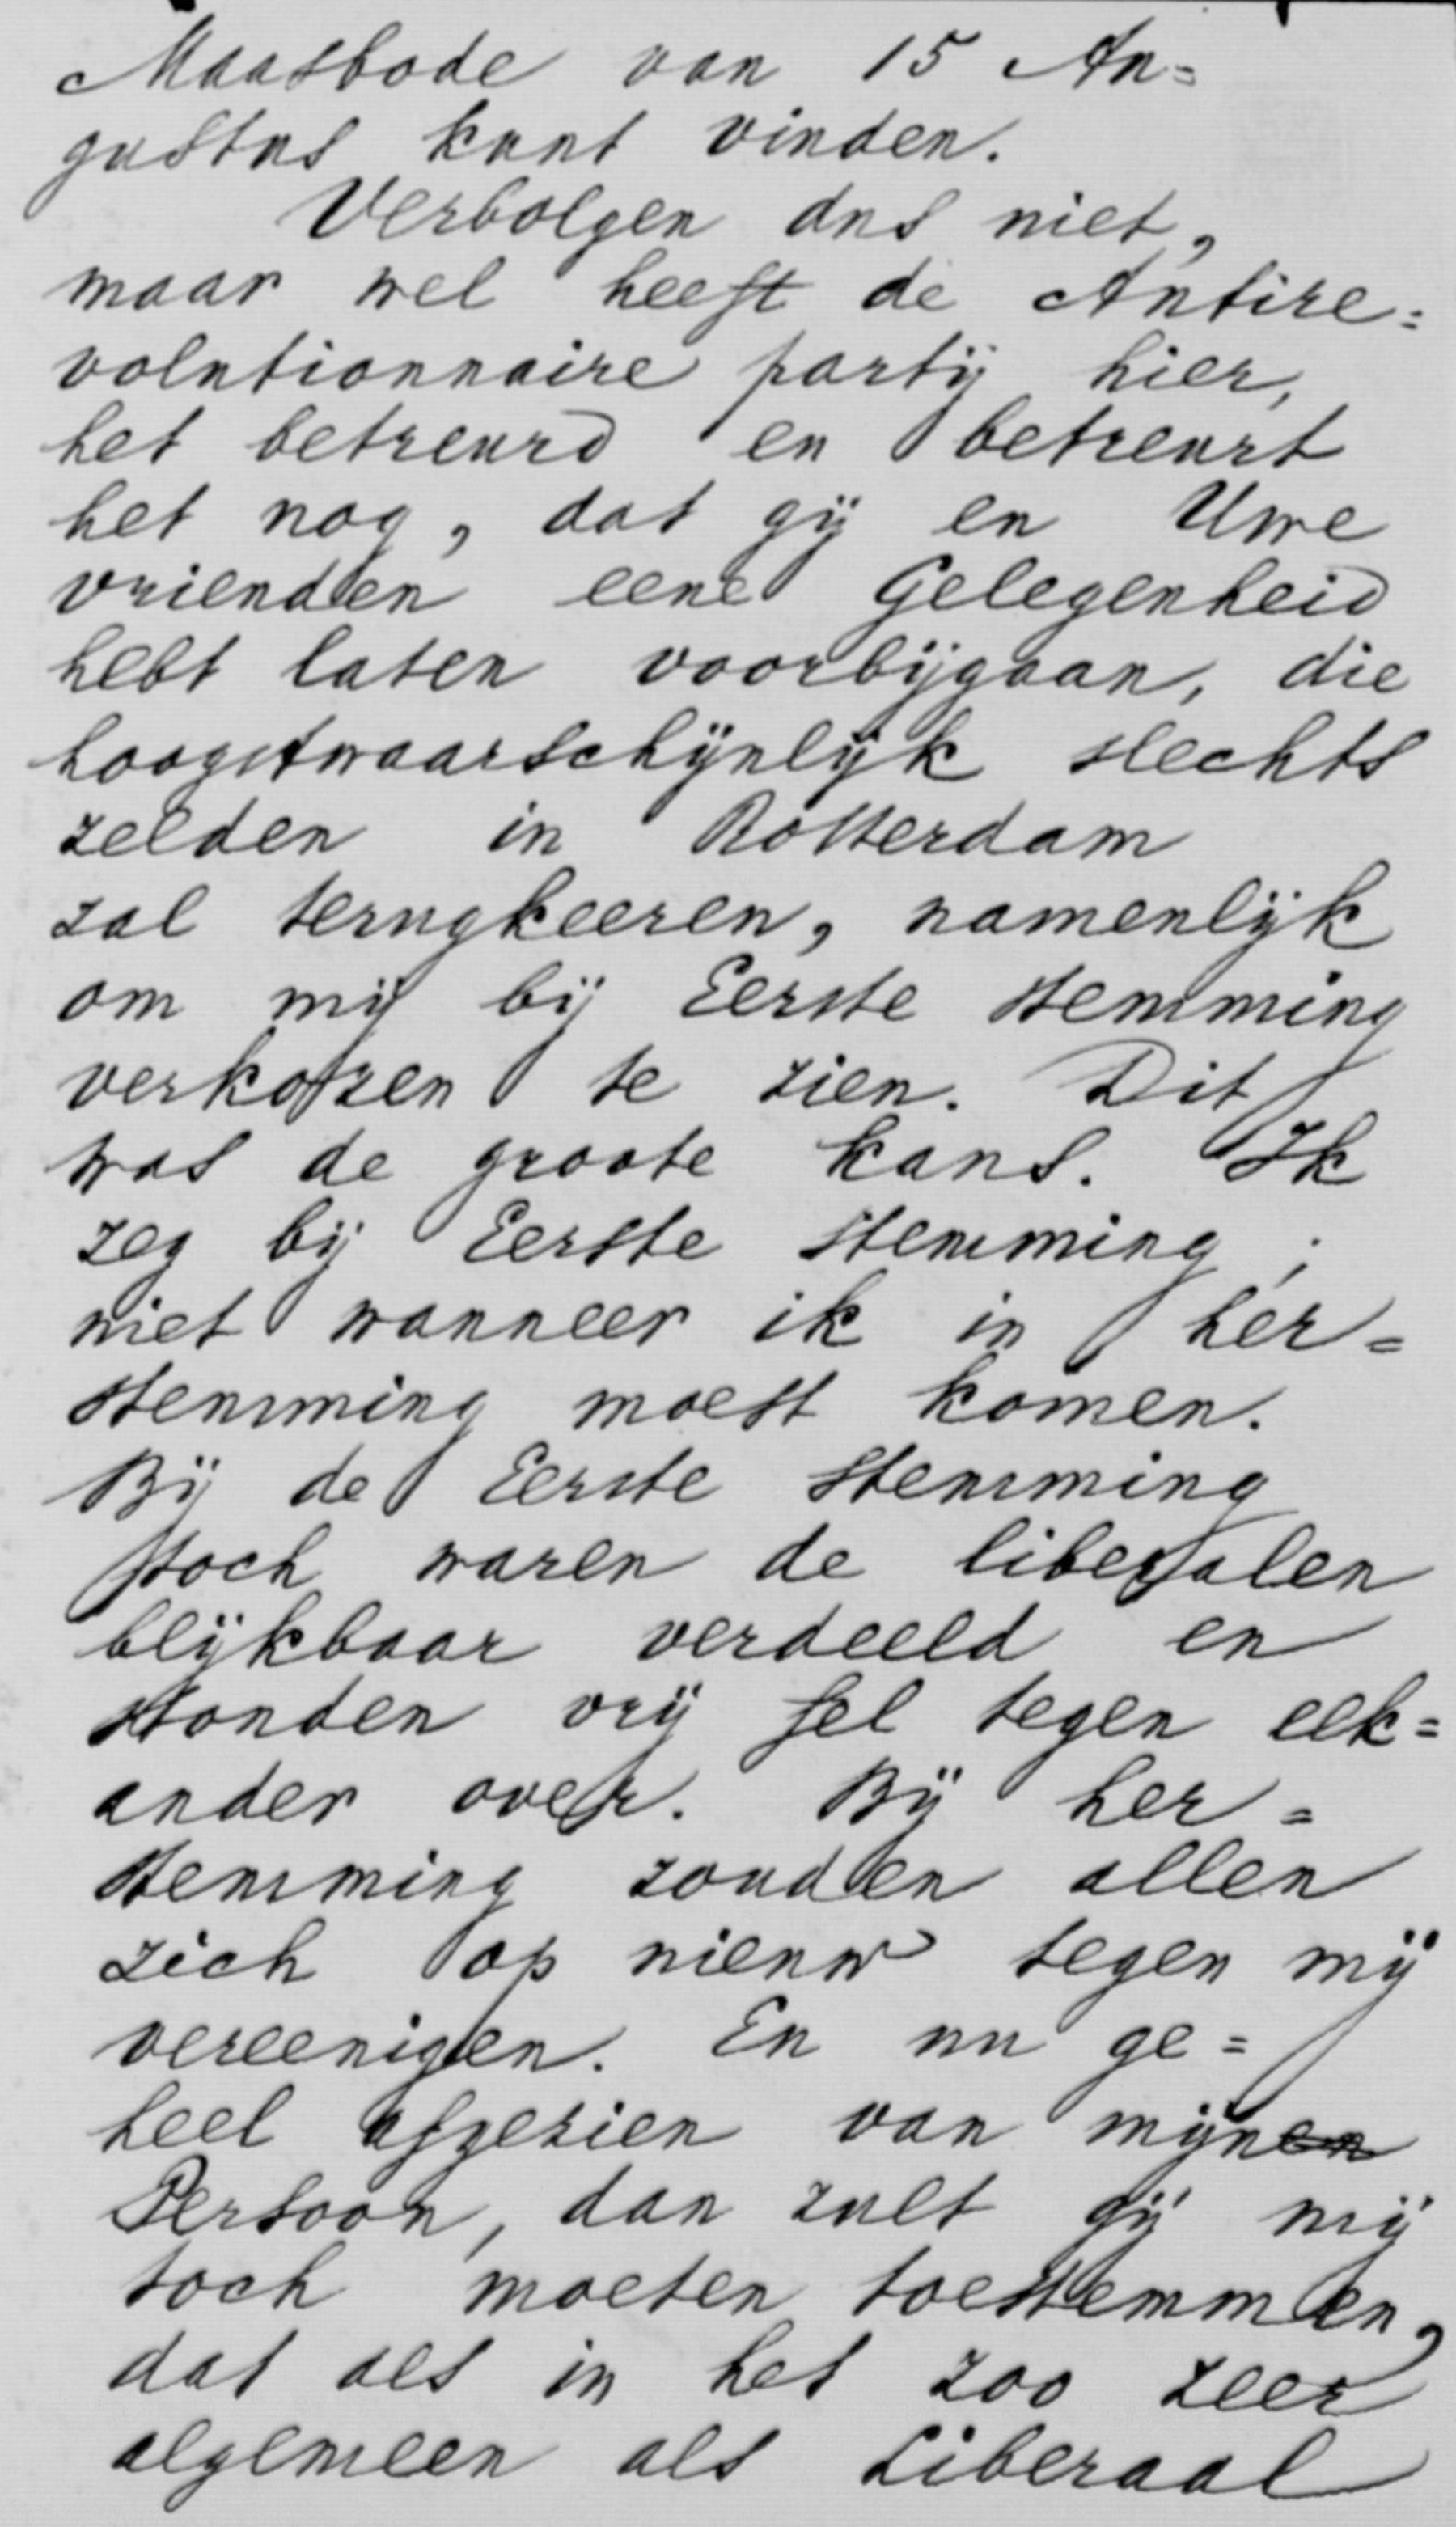 Maasbode van 15 Au=
gustus kunt vinden.
Verbolgen dus niet,
maar wel heeft de Antire=
volutionnaire partij hier,
het betreurd en betreurt
het nog, dat gij en Uwe
vrienden eene Gelegenheid
hebt laten voorbijgaan, die
hoogstwaarschijnlijk slechts
zelden in Rotterdam
zal terugkeeren, namenlijk
om mij bij Eerste stemming
verkozen te zien. Dit
was de groote kans. Ik
zeg bij Eerste stemming;
niet wanneer ik in her=
stemming moest komen.
Bij de Eerste stemming
toch waren de liberalen
blijkbaar verdeeld en
stonden vrij fel tegen elk=
ander over. Bij her=
stemming zouden allen
zich op nieuw tegen mij
vereenigen. En nu ge=
heel afgezien van mijnen
Persoon, dan zult gij mij
toch moeten toestemmen,
dat als in het zoo zeer
algemeen als Liberaal